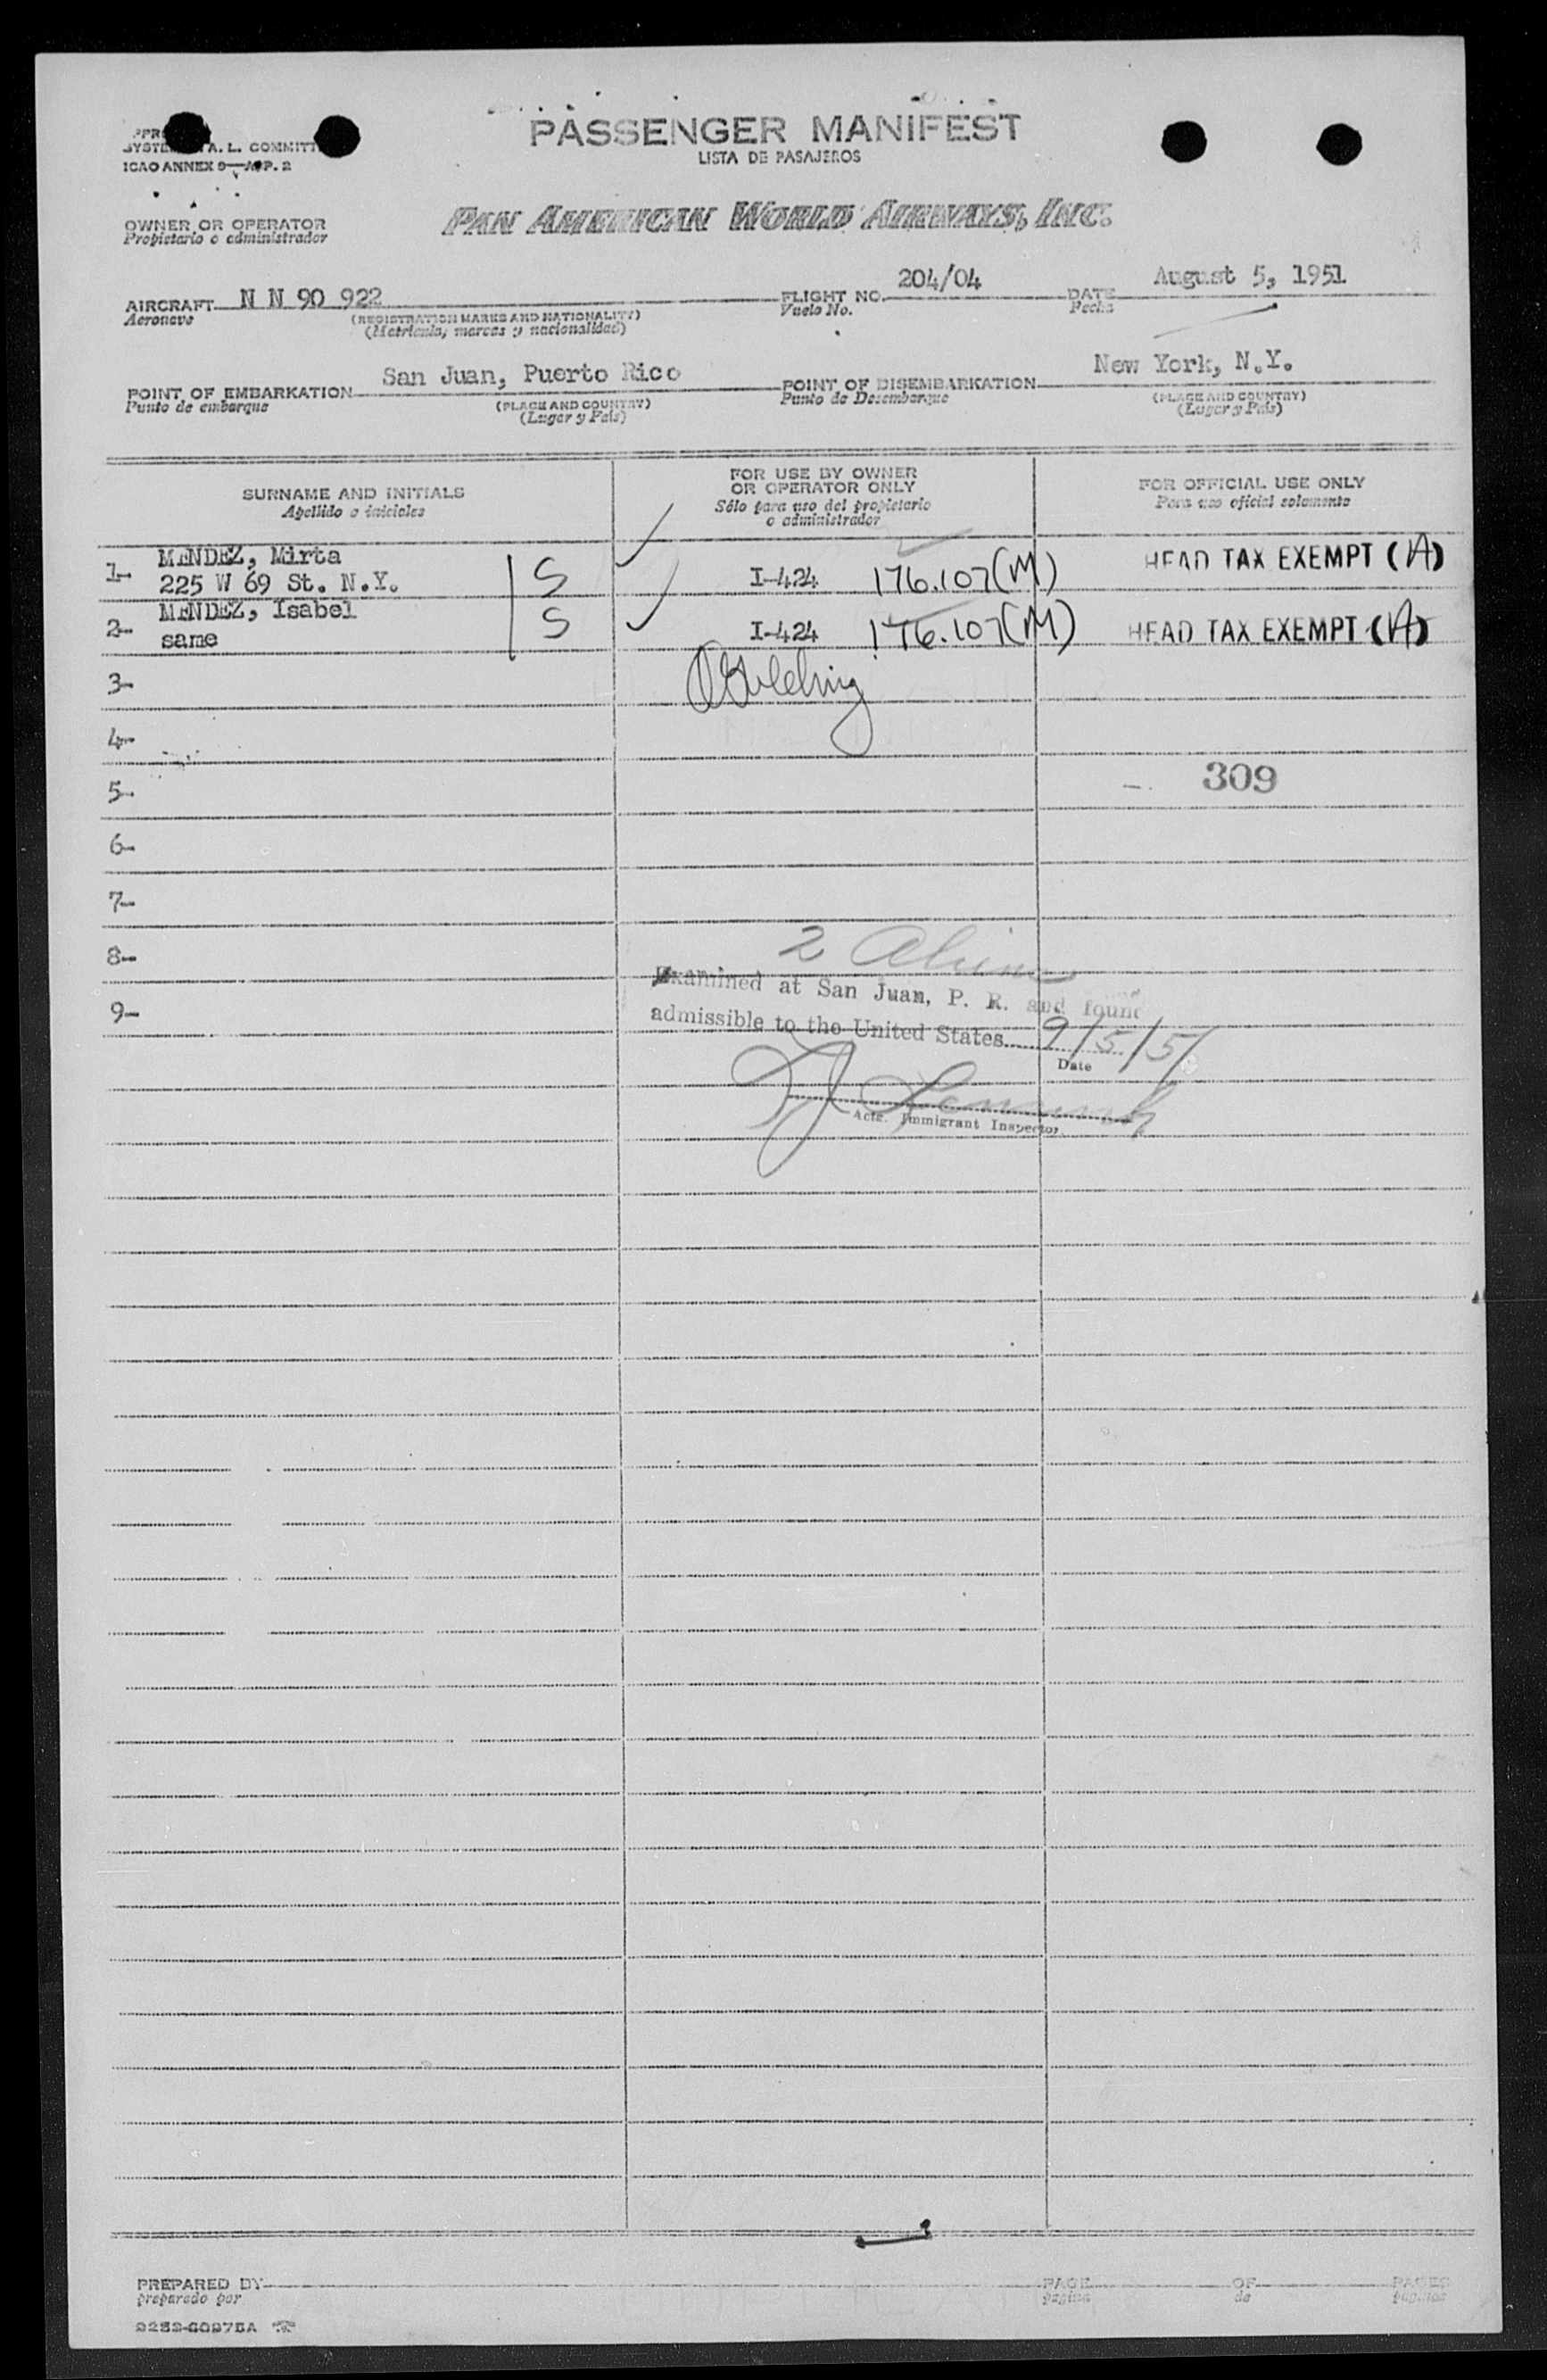 PASSENGER MANIFEST
LISTA DE PASAJEROS
A. L. COMMITT
ICAO ANNEX 9—APP. 2
OWNER OR OPERATOR
Propietario o administrador
PAN AMERICAN WORLD AIRWAYS, INC.
AIRCRAFT N N 90 922 FLIGHT NO. 204/04 DATE August 5, 1951
Aeronave (REGISTRATION MARKS AND NATIONALITY) Vuelo No. Fecha
(Matricula, marcas y nacionalidad)
POINT OF EMBARKATION San Juan, Puerto Rico POINT OF DISEMBARKATION New York, N.Y.
Punto de embarque (PLACE AND COUNTRY) Punto de Desembarque (PLACE AND COUNTRY)
(Lugar y País) (Lugar y País)
SURNAME AND INITIALS
Apellido e iniciales
FOR USE BY OWNER
OR OPERATOR ONLY
Sólo para uso del propietario
o administrador
FOR OFFICIAL USE ONLY
Para uso oficial solamente
1- MENDEZ, Mirta
225 W 69 St. N.Y. S I-424 176.107(M) HEAD TAX EXEMPT (A)
2- MENDEZ, Isabel
same S I-424 176.107(M) HEAD TAX EXEMPT (A)
3-
4-
5- 309
6-
7-
8- 2
Examined at San Juan, P. R. and found
9- admissible to the United States 9/5/51
Date
Actg. Immigrant Inspector
PREPARED BY PAGE OF PAGES
preparado por página de páginas